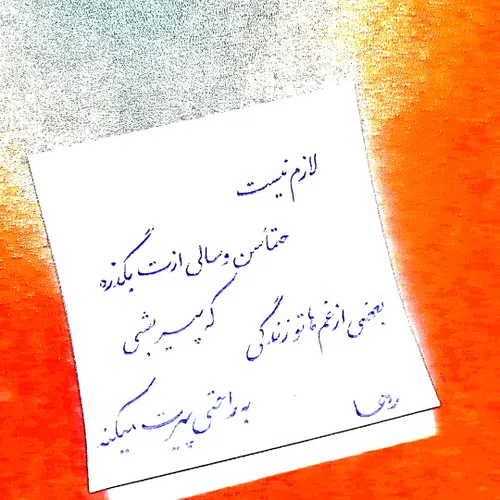 لازم نیست
حتماً سن و سالی ازت بگذره
که پیر بشی
بعضی از غم ها تو زندگی
به راحتی پیرت میکنه
رها